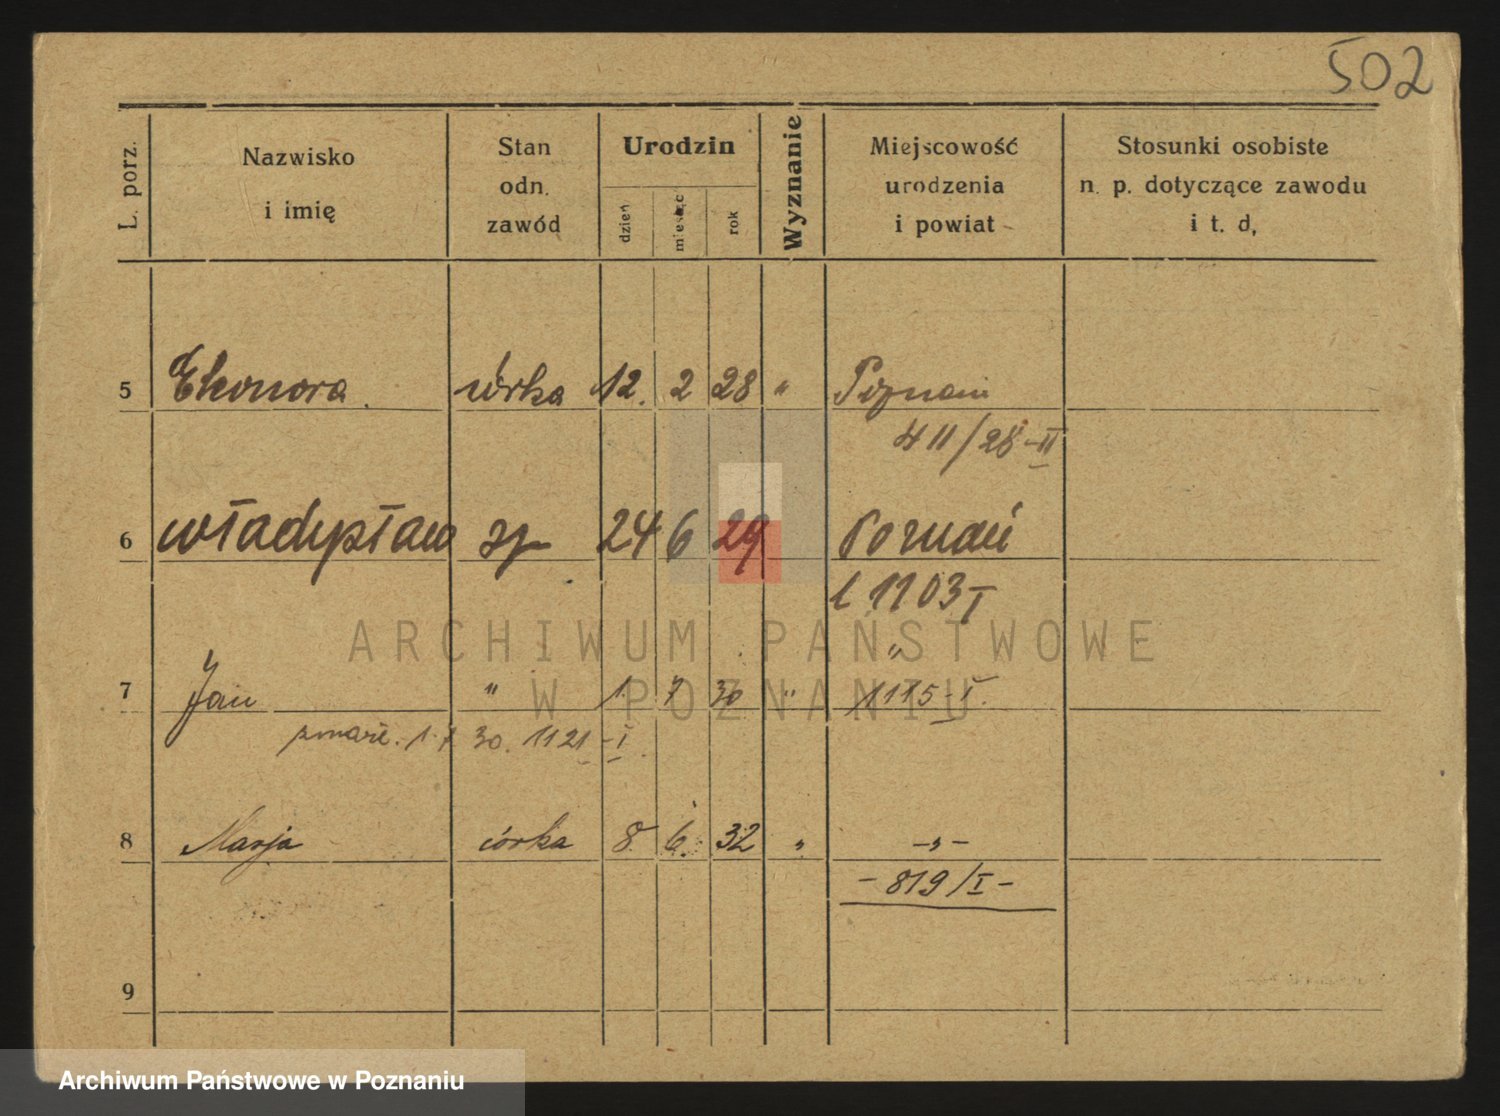 502
L. porz.
Nazwisko
i imię
Stan
odn.
zawód
Urodzin
dzień
miesiąc
rok
Wyznanie
Miejscowość
urodzenia
i powiat
Stosunki osobiste
n. p. dotyczące zawodu
i t. d,
5 Eleonora córka 12. 2 28 " Poznań
411/28-II
6 Władysław sy 24 6 29 Poznań
1103 I
"
7 Jan " 1. 7 30 " 1115-I.
zmarł. 1.7 30. 1121-I.
8 Marja córka 8. 6. 32 " -"-
-819/I-
9
ARCHIWUM PAŃSTWOWE
W POZNANIU
Archiwum Państwowe w Poznaniu